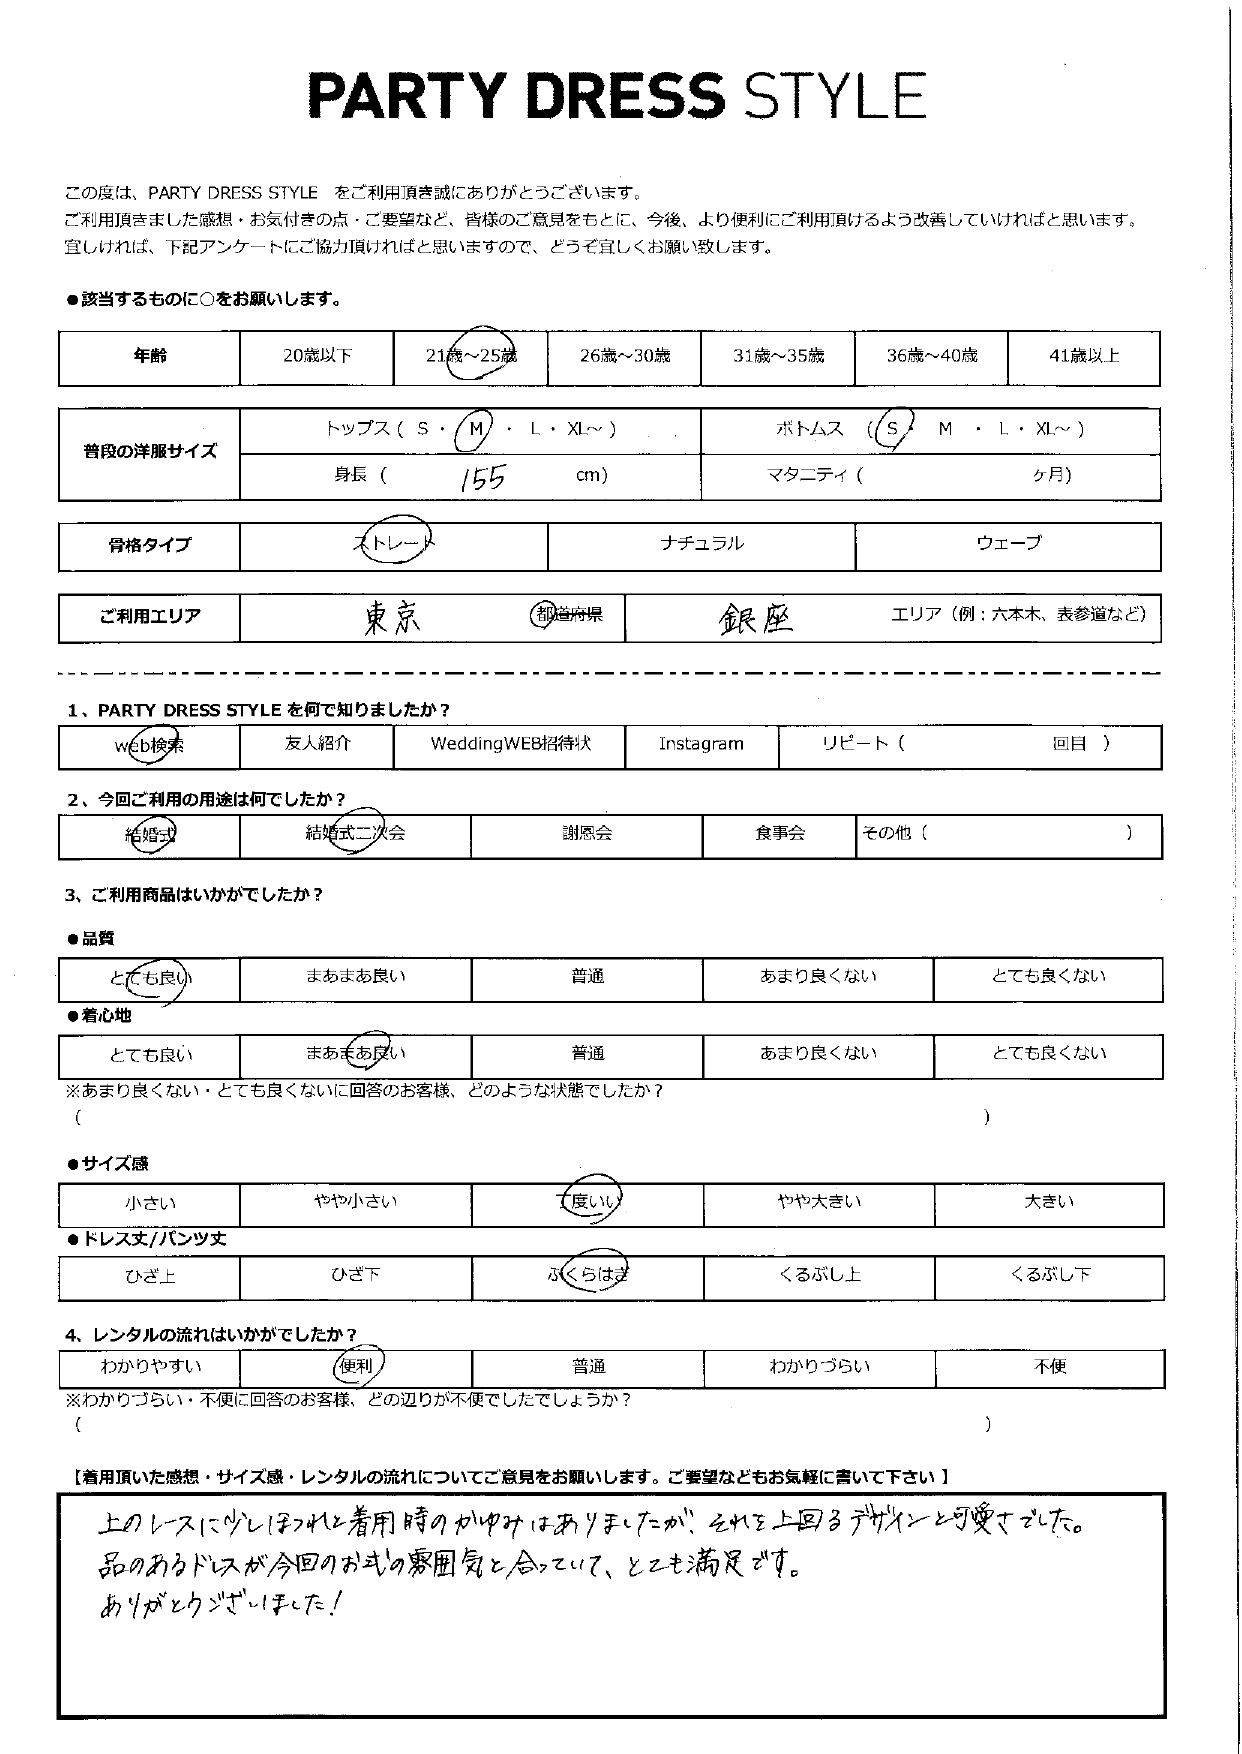 PARTY DRESS STYLE
この度は、PARTY DRESS STYLE をご利用頂き誠にありがとうございます。
ご利用頂きました感想・お気付きの点・ご要望など、皆様のご意見をもとに、今後、より便利にご利用頂けるよう改善していければと思います。
宜しければ、下記アンケートにご協力頂ければと思いますので、どうぞ宜しくお願い致します。
●該当するものに○をお願いします。
年齢 20歳以下 21歳～25歳 26歳～30歳 31歳～35歳 36歳～40歳 41歳以上
普段の洋服サイズ トップス ( S ・ M ・ L ・ XL～ ) ボトムス ( S ・ M ・ L ・ XL～ )
身長 ( 155 cm) マタニティ ( ヶ月)
骨格タイプ ストレート ナチュラル ウェーブ
ご利用エリア 東京 都道府県 銀座 エリア（例：六本木、表参道など）
1、PARTY DRESS STYLE を何で知りましたか？
web検索 友人紹介 WeddingWEB招待状 Instagram リピート ( 回目 )
2、今回ご利用の用途は何でしたか？
結婚式 結婚式二次会 謝恩会 食事会 その他 ( )
3、ご利用商品はいかがでしたか？
●品質
とても良い まあまあ良い 普通 あまり良くない とても良くない
●着心地
とても良い まあまあ良い 普通 あまり良くない とても良くない
※あまり良くない・とても良くないに回答のお客様、どのような状態でしたか？
( )
●サイズ感
小さい やや小さい 丁度いい やや大きい 大きい
●ドレス丈/パンツ丈
ひざ上 ひざ下 ふくらはぎ くるぶし上 くるぶし下
4、レンタルの流れはいかがでしたか？
わかりやすい 便利 普通 わかりづらい 不便
※わかりづらい・不便に回答のお客様、どの辺りが不便でしたでしょうか？
( )
【着用頂いた感想・サイズ感・レンタルの流れについてご意見をお願いします。ご要望などもお気軽に書いて下さい 】
上のレースに少しほつれと着用時のかゆみはありましたが、それを上回るデザインと可愛さでした。
品のあるドレスが今回のお式の雰囲気と合っていて、とても満足です。
ありがとうございました！